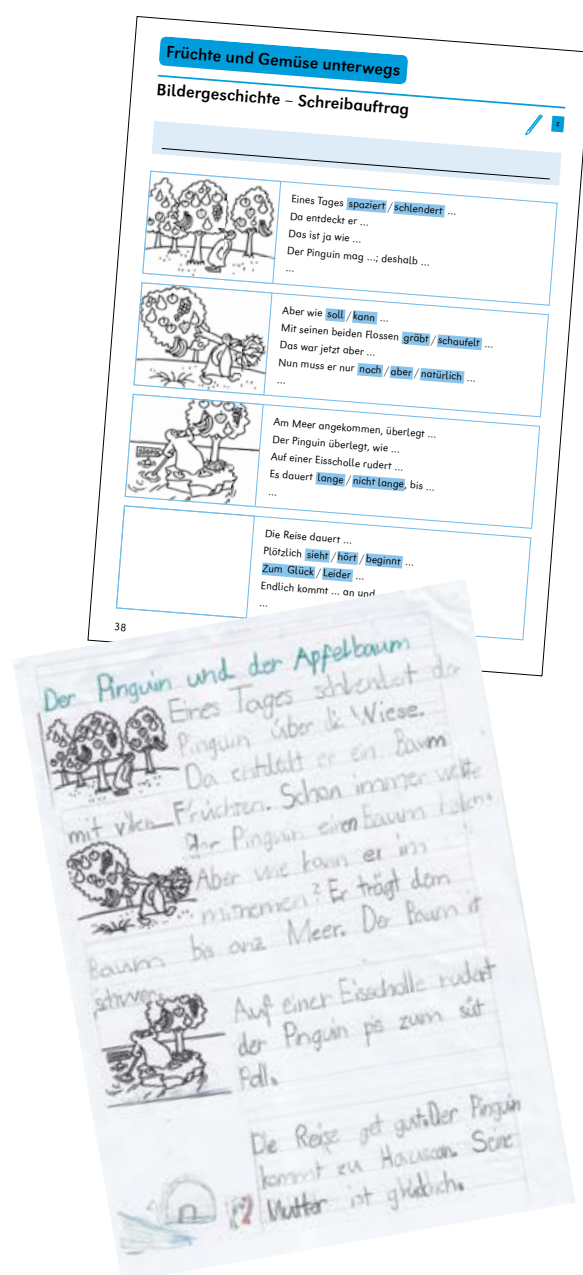 Früchte und Gemüse unterwegs
Bildergeschichte – Schreibauftrag
2
Eines Tages spaziert / schlendert ...
Da entdeckt er ...
Das ist ja wie ...
Der Pinguin mag ...; deshalb ...
...
Aber wie soll / kann ...
Mit seinen beiden Flossen gräbt / schaufelt ...
Das war jetzt aber ...
Nun muss er nur noch / aber / natürlich ...
...
Am Meer angekommen, überlegt ...
Der Pinguin überlegt, wie ...
Auf einer Eisscholle rudert ...
Es dauert lange / nicht lange, bis ...
...
Die Reise dauert ...
Plötzlich sieht / hört / beginnt ...
Zum Glück / Leider ...
Endlich kommt ... an und
...
38
Der Pinguin und der Apfelbaum
Eines Tages schlendert der
Pinguin über die Wiese.
Da entdekt er ein Baum
mit vilen Früchten. Schon immer wollte
der Pinguin einen Baum haben.
Aber wie kann er im
mitnemen? Er trägt dem
Baum bis anz Meer. Der Baum it
schwer.
Auf einer Eisscholle rudert
der Pinguin pis zum süt
Poll.
Die Reise get gut. Der Pinguin
kommt zu Hause an. Seine
Mutter ist glücklich.